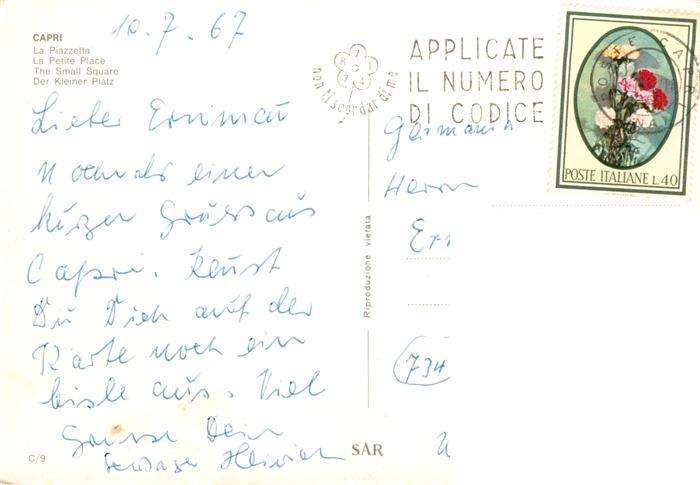 10.7.67
CAPRI
La Piazzetta
La Petite Place
The Small Square
Der Kleiner Platz
non ti scordar di me
APPLICATE
IL NUMERO
DI CODICE
POSTE ITALIANE L.40
Lieber
Nochmals einen
kurzen Gruss aus
Capri. Kenst
Du Dich auf der
Karte noch ein
bisle aus. Viel
Grüsse Dein
Schwager Heinrich
Germania
Herrn
(734
Riproduzione vietata
C/9
SAR